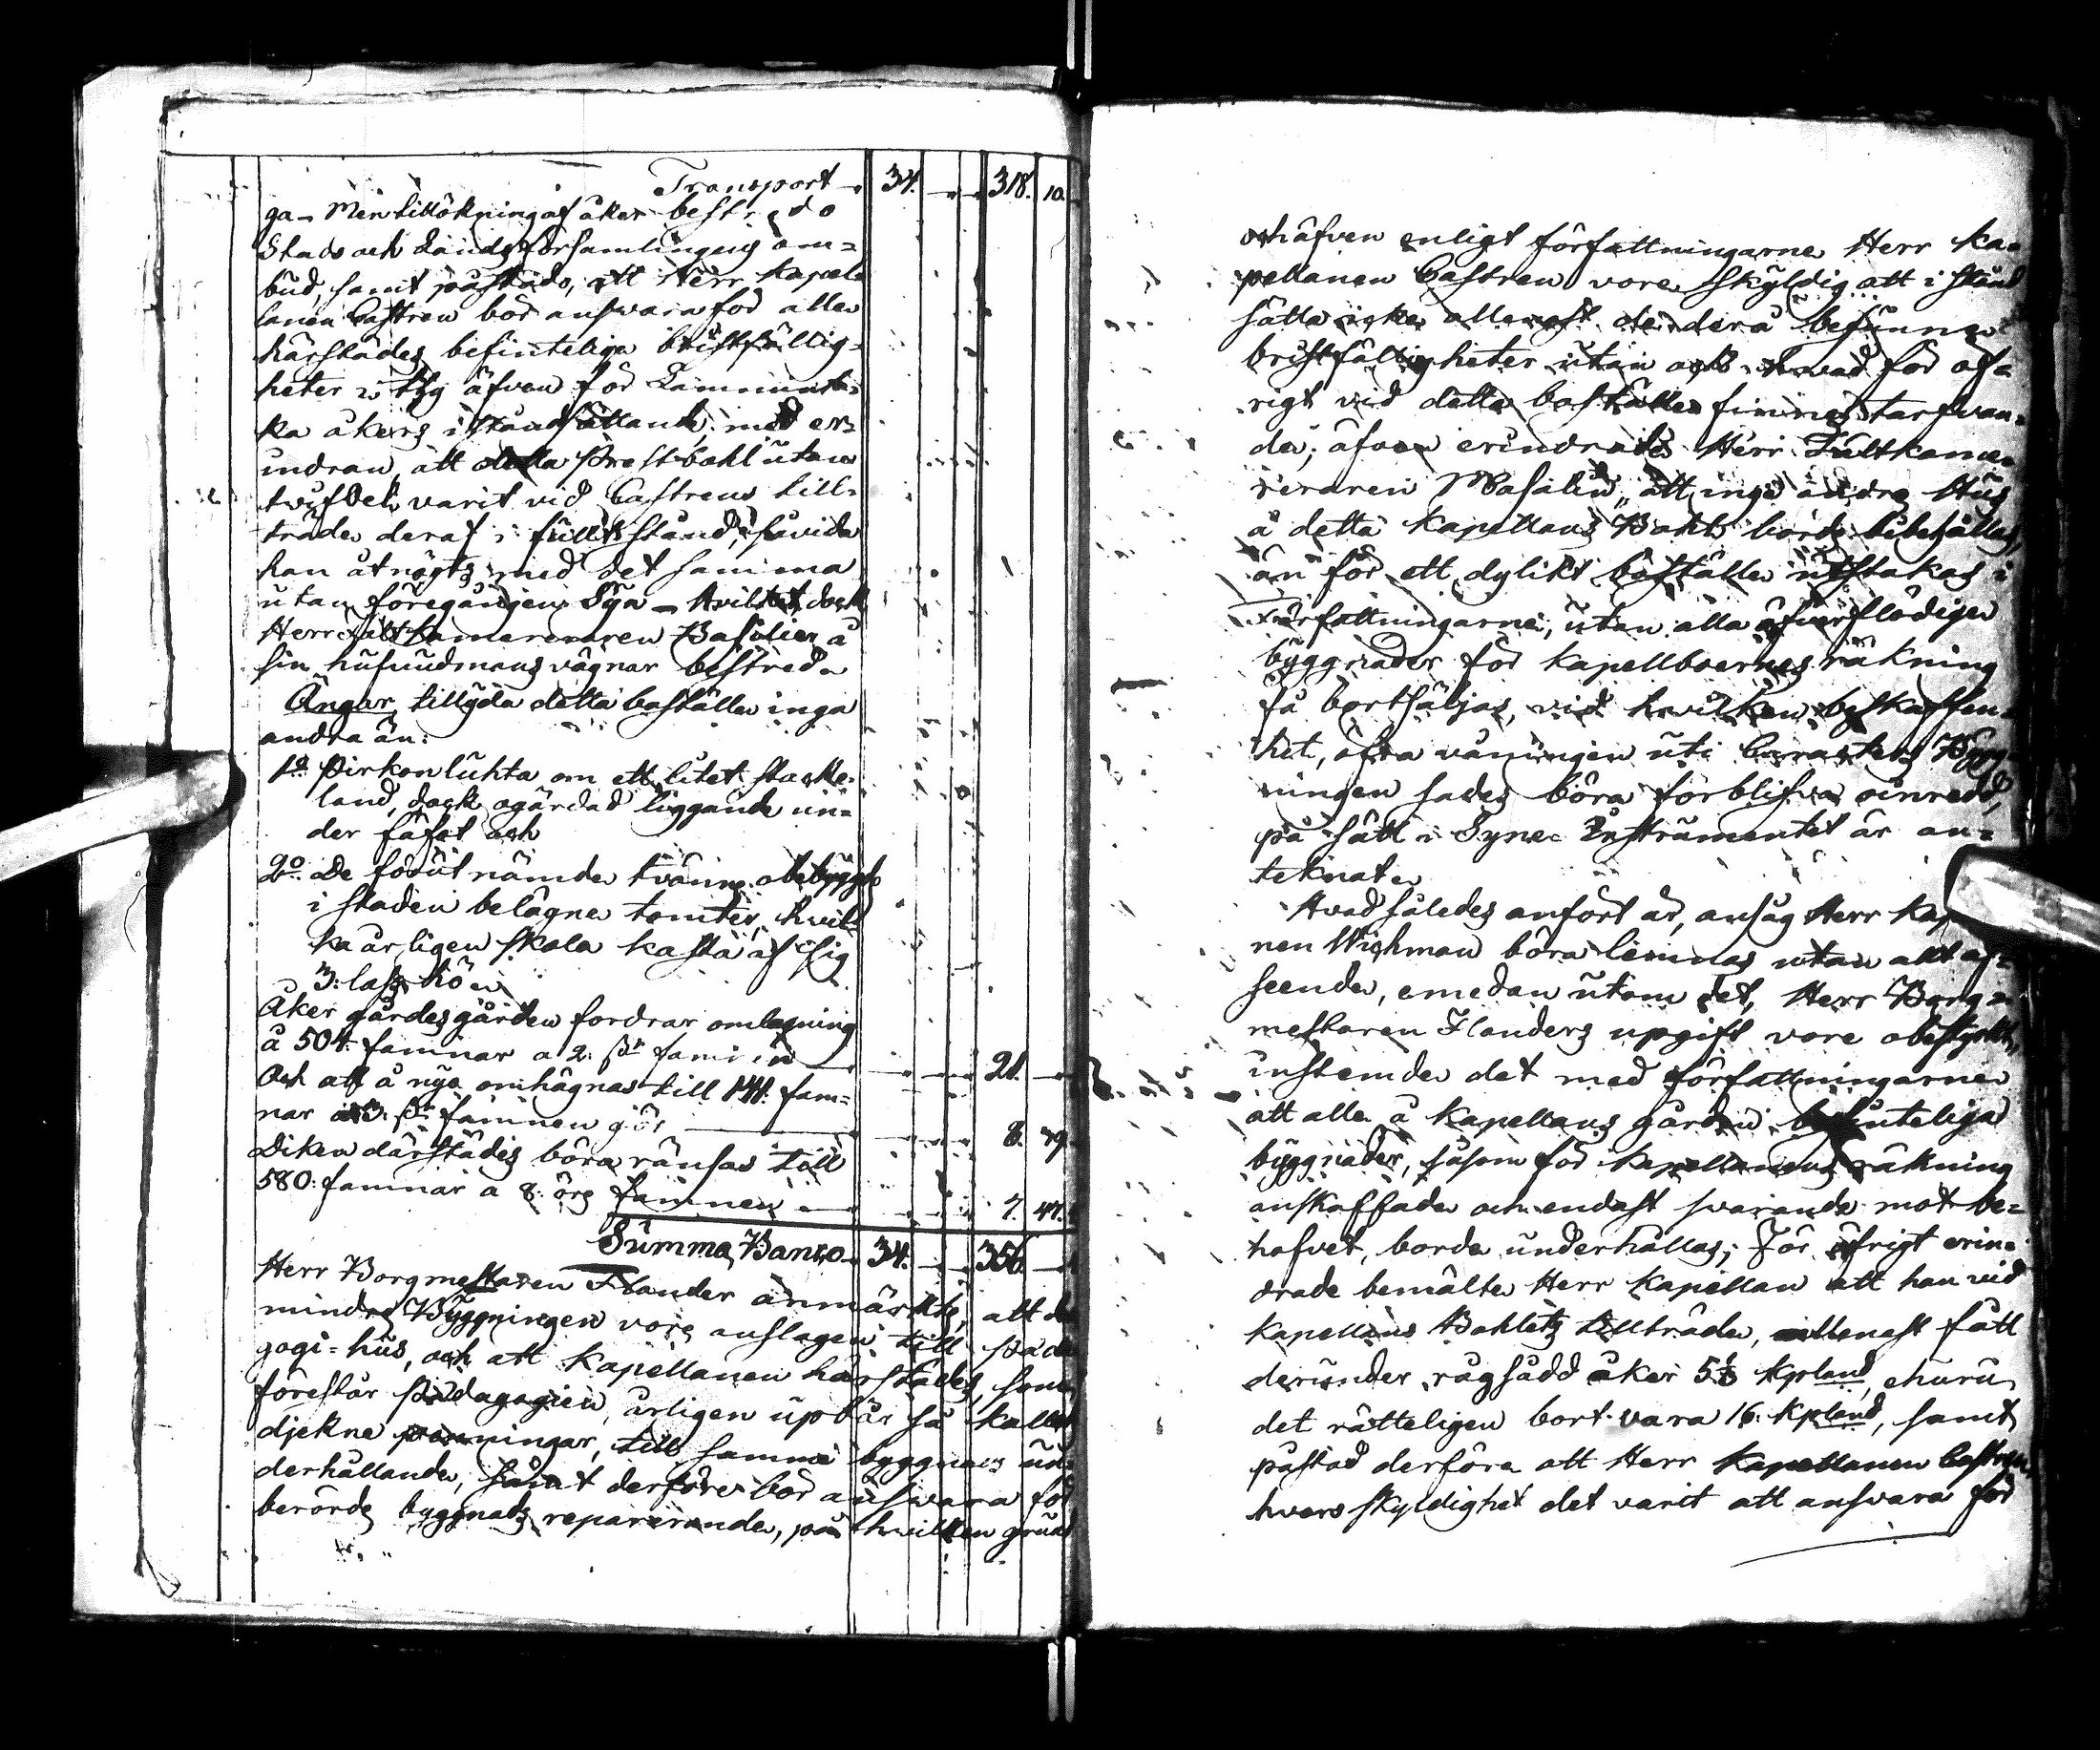 Transport 34. 318. 10.
ga. Men tillökning af åker bestredo
Stads och Landsförsamlingens om=
bud, samt påstodo, att Herr Kapel=
lanen Castren bör answara för alla
härstädes befinteliga bristfällig=
heter och äfven för
ka åkerns i stånd sättande, med er=
indran, att detta Prestbohl utan
twifvel varit vid Castrens till=
träde deraf i fullt stånd, såvida
han åtnögts med det samma
utan föregången Syn. Hvilket dock
Herr Fältkamereraren Basilier å
sin hufvudmans vägnar bestred.
Ängar tillyda detta boställe inga
andra än:
1o Pirkonluhta om ett litet starrke=
land, dock ogärdad liggande un=
der fäfot och
2o De förut nämnda tvänne obebygde
i staden belägne tomter, hvil=
ka årligen skola kasta af sig
3: lass hö
Åker gärdesgården fordrar omlagning
å 504: famnar a 2: sk famnen 21.
Och att å nyo omhägnas till 141: fam=
nar a 3: sk famnen gör 8. 39
Diken därstädes böra ränsas till
580: famnar a 8: örs famnen 7. 47.
Summa Banco 34. 356.
Herr Borgmestaren Flander anmärkte, att den
mindre Byggningen vore anslagen till Päda
gogi=hus, och att Kapellanen härstädes, som
förestår Pædagogien, årligen upbär så kallade
djekne penningar, till samma byggnads un=
derhållande, samt derföre bör answara för
berörde byggnads reparerande, på hvilken grund
och äfven enligt författningarne Herr Ka=
pellanen Castren vore skyldig att i stånd
sätta icke allenast de derå befunne
bristfälligheter utan ock hwad för öf=
rigt vid detta boställe finnes tarfvan=
de; äfven erindrade Herr Fältkame=
reraren Basilier, att inga andre Hus
å detta Kapellans Bohl borde bibehållas,
än för ett dylikt boställe utstakas i
Författningarne, utan alla öfverflödiga
byggnader för Kapellboernes räkning
få bortsäljas, vid hvilken beskaffen=
het, öfra våningen uti Caracters Bygg=
ningen sades böra förblifva oinredd,
på sätt i Syne Instrumentet är an=
teknat.
Hvad således anfört är, ansåg Herr Kap
nen Wichman böra lemnas utan allt af=
seende, emedan utom det, Herr Borg=
mestaren Flanders upgift vore obestyrkt,
instemde det med författningarne
att alla å Kapellans gården befinteliga
byggnader, såsom för Kapellanens räkning
anskaffade och endast swarande mot be=
hofvet, borde underhållas; För öfrigt erin=
drade bemälte Herr Kapellan att han vid
Kapellans Bohlets tillträde, allenast fått
derunder rågsådd åker 5 1/2 kpland, ehuru
det rätteligen bort vara 16: kpland, samt
påstod derföre att Herr Kapellanen Castren,
hvars skyldighet det varit att answara för